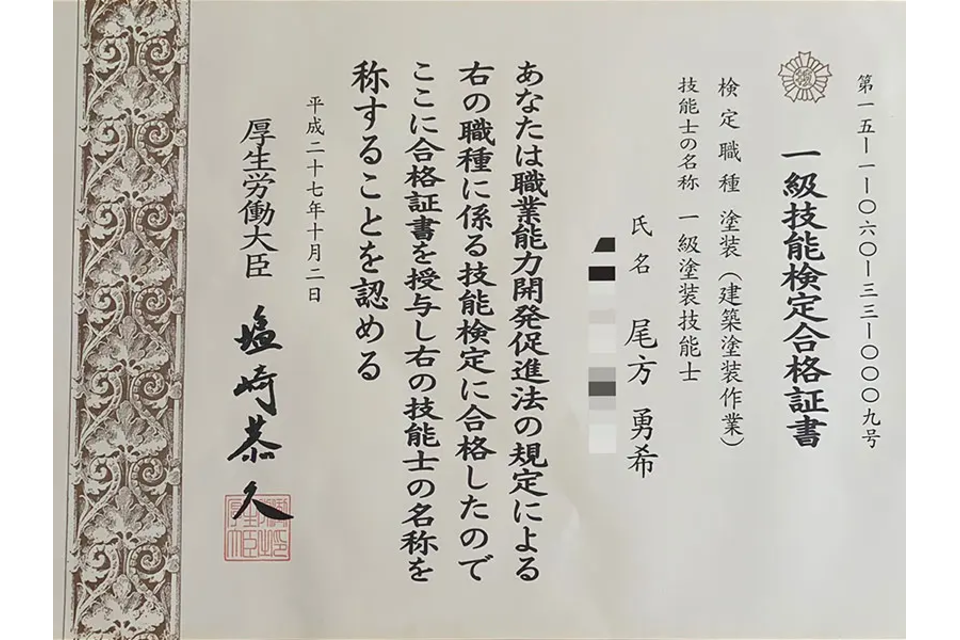 第一五ー一ー〇六〇ー三三ー〇〇〇九号
一級技能検定合格証書
検定職種 塗装（建築塗装作業）
技能士の名称 一級塗装技能士
氏名 尾方 勇希
あなたは職業能力開発促進法の規定による
右の職種に係る技能検定に合格したので
ここに合格証書を授与し右の技能士の名称を
称することを認める
平成二十七年十月二日
厚生労働大臣 塩崎恭久